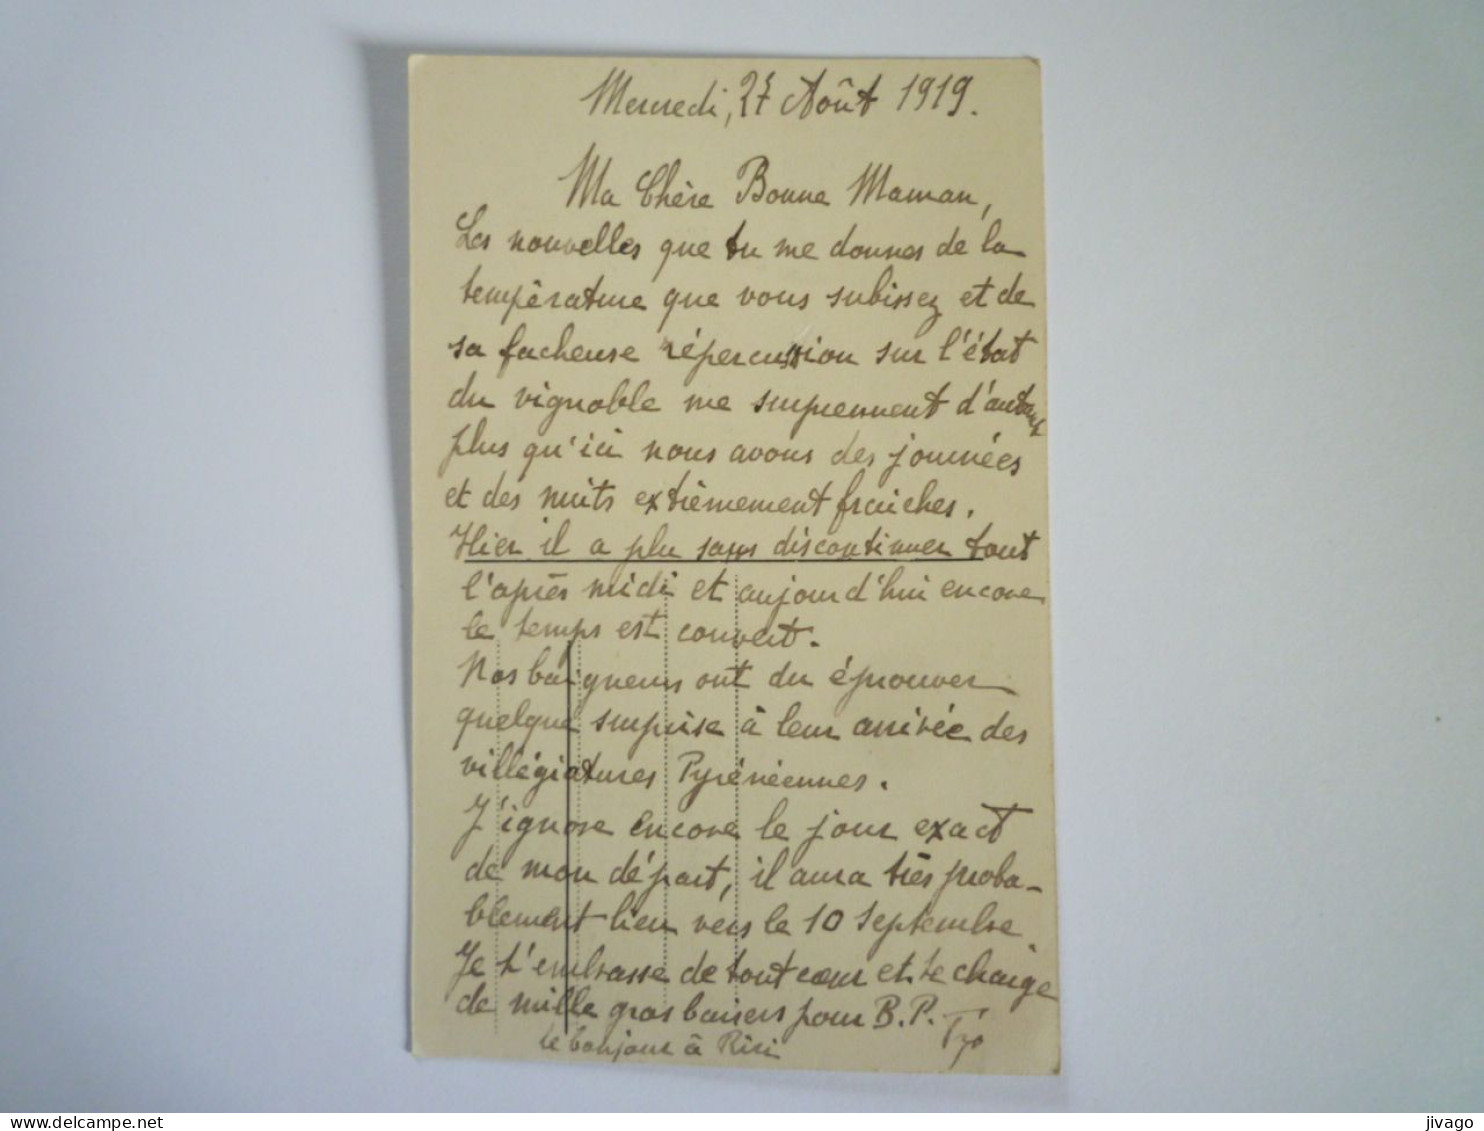 Mercredi, 27 Août 1919.
Ma Chère Bonne Maman,
Les nouvelles que tu me donnes de la
température que vous subissez et de
sa facheuse répercussion sur l'état
du vignoble me surprennent d'autant
plus qu'ici nous avons des journées
et des nuits extrêmement fraiches.
Hier il a plu sans discontinuer tout
l'après midi et aujourd'hui encore
le temps est couvert.
Nos baigneurs ont du éprouver
quelque surprise à leur arrivée des
villégiatures Pyrénéennes.
J'ignore encore le jour exact
de mon départ, il aura très proba-
blement lieu vers le 10 Septembre.
Je t'embrasse de tout cœur et te charge
de mille gros baisers pour B.P.
le bonjour à Riri
delcampe.net
jivago